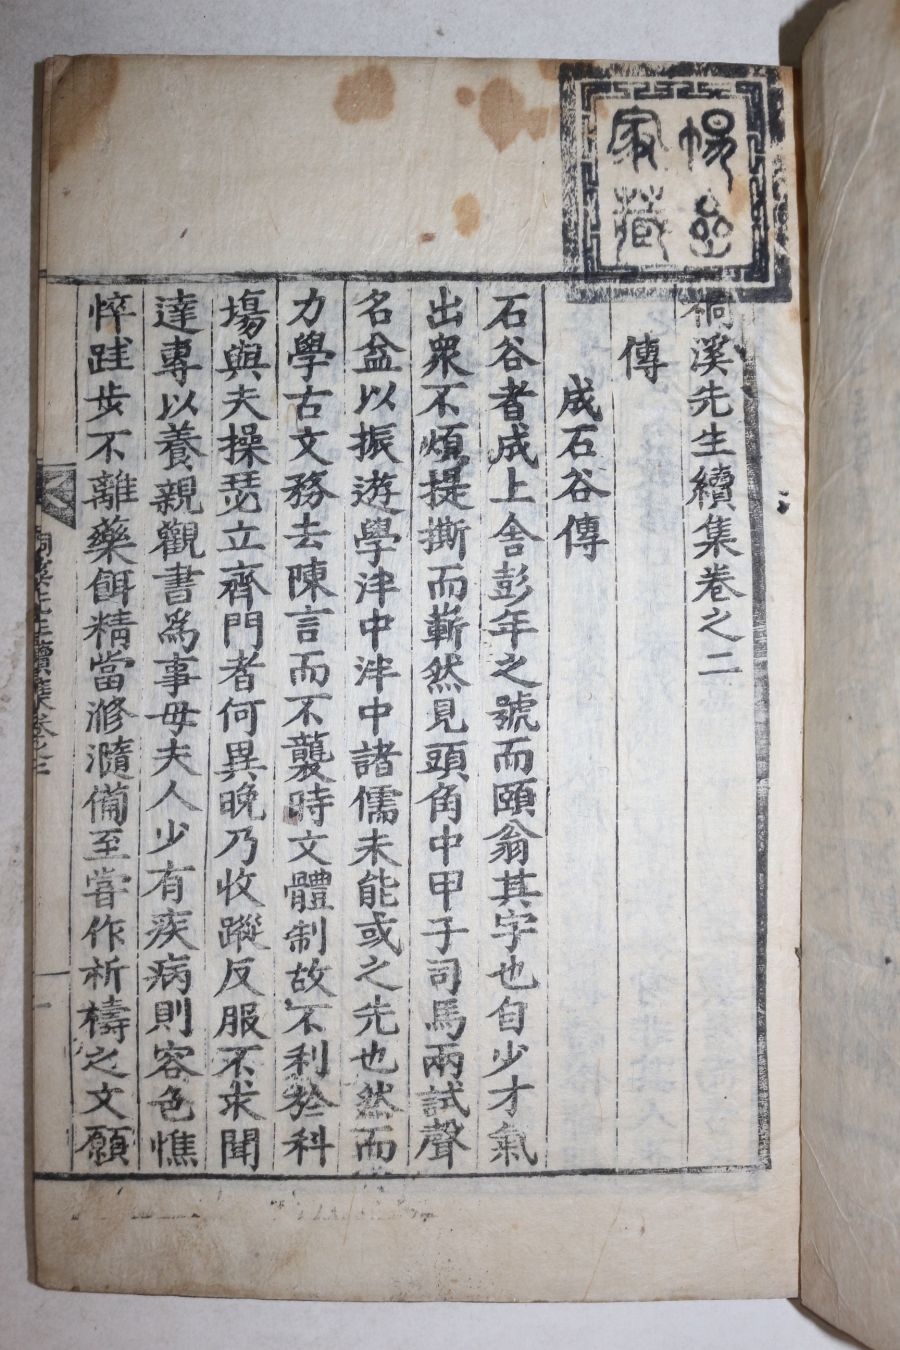 桐溪先生續集卷之二
傳
成石谷傳
石谷者成上舍彭年之號而頤翁其字也自少才氣
出衆不煩提撕而嶄然見頭角中甲子司馬兩試聲
名益以振遊學泮中泮中諸儒未能或之先也然而
力學古文務去陳言而不襲時文體制故不利於科
場與夫操瑟立齊門者何異晚乃收蹤反服不求聞
達專以養親觀書爲事母夫人少有疾病則容色憔
悴跬步不離藥餌精當滫瀡備至嘗作祈禱之文願
桐溪先生續集卷之二
一
家藏